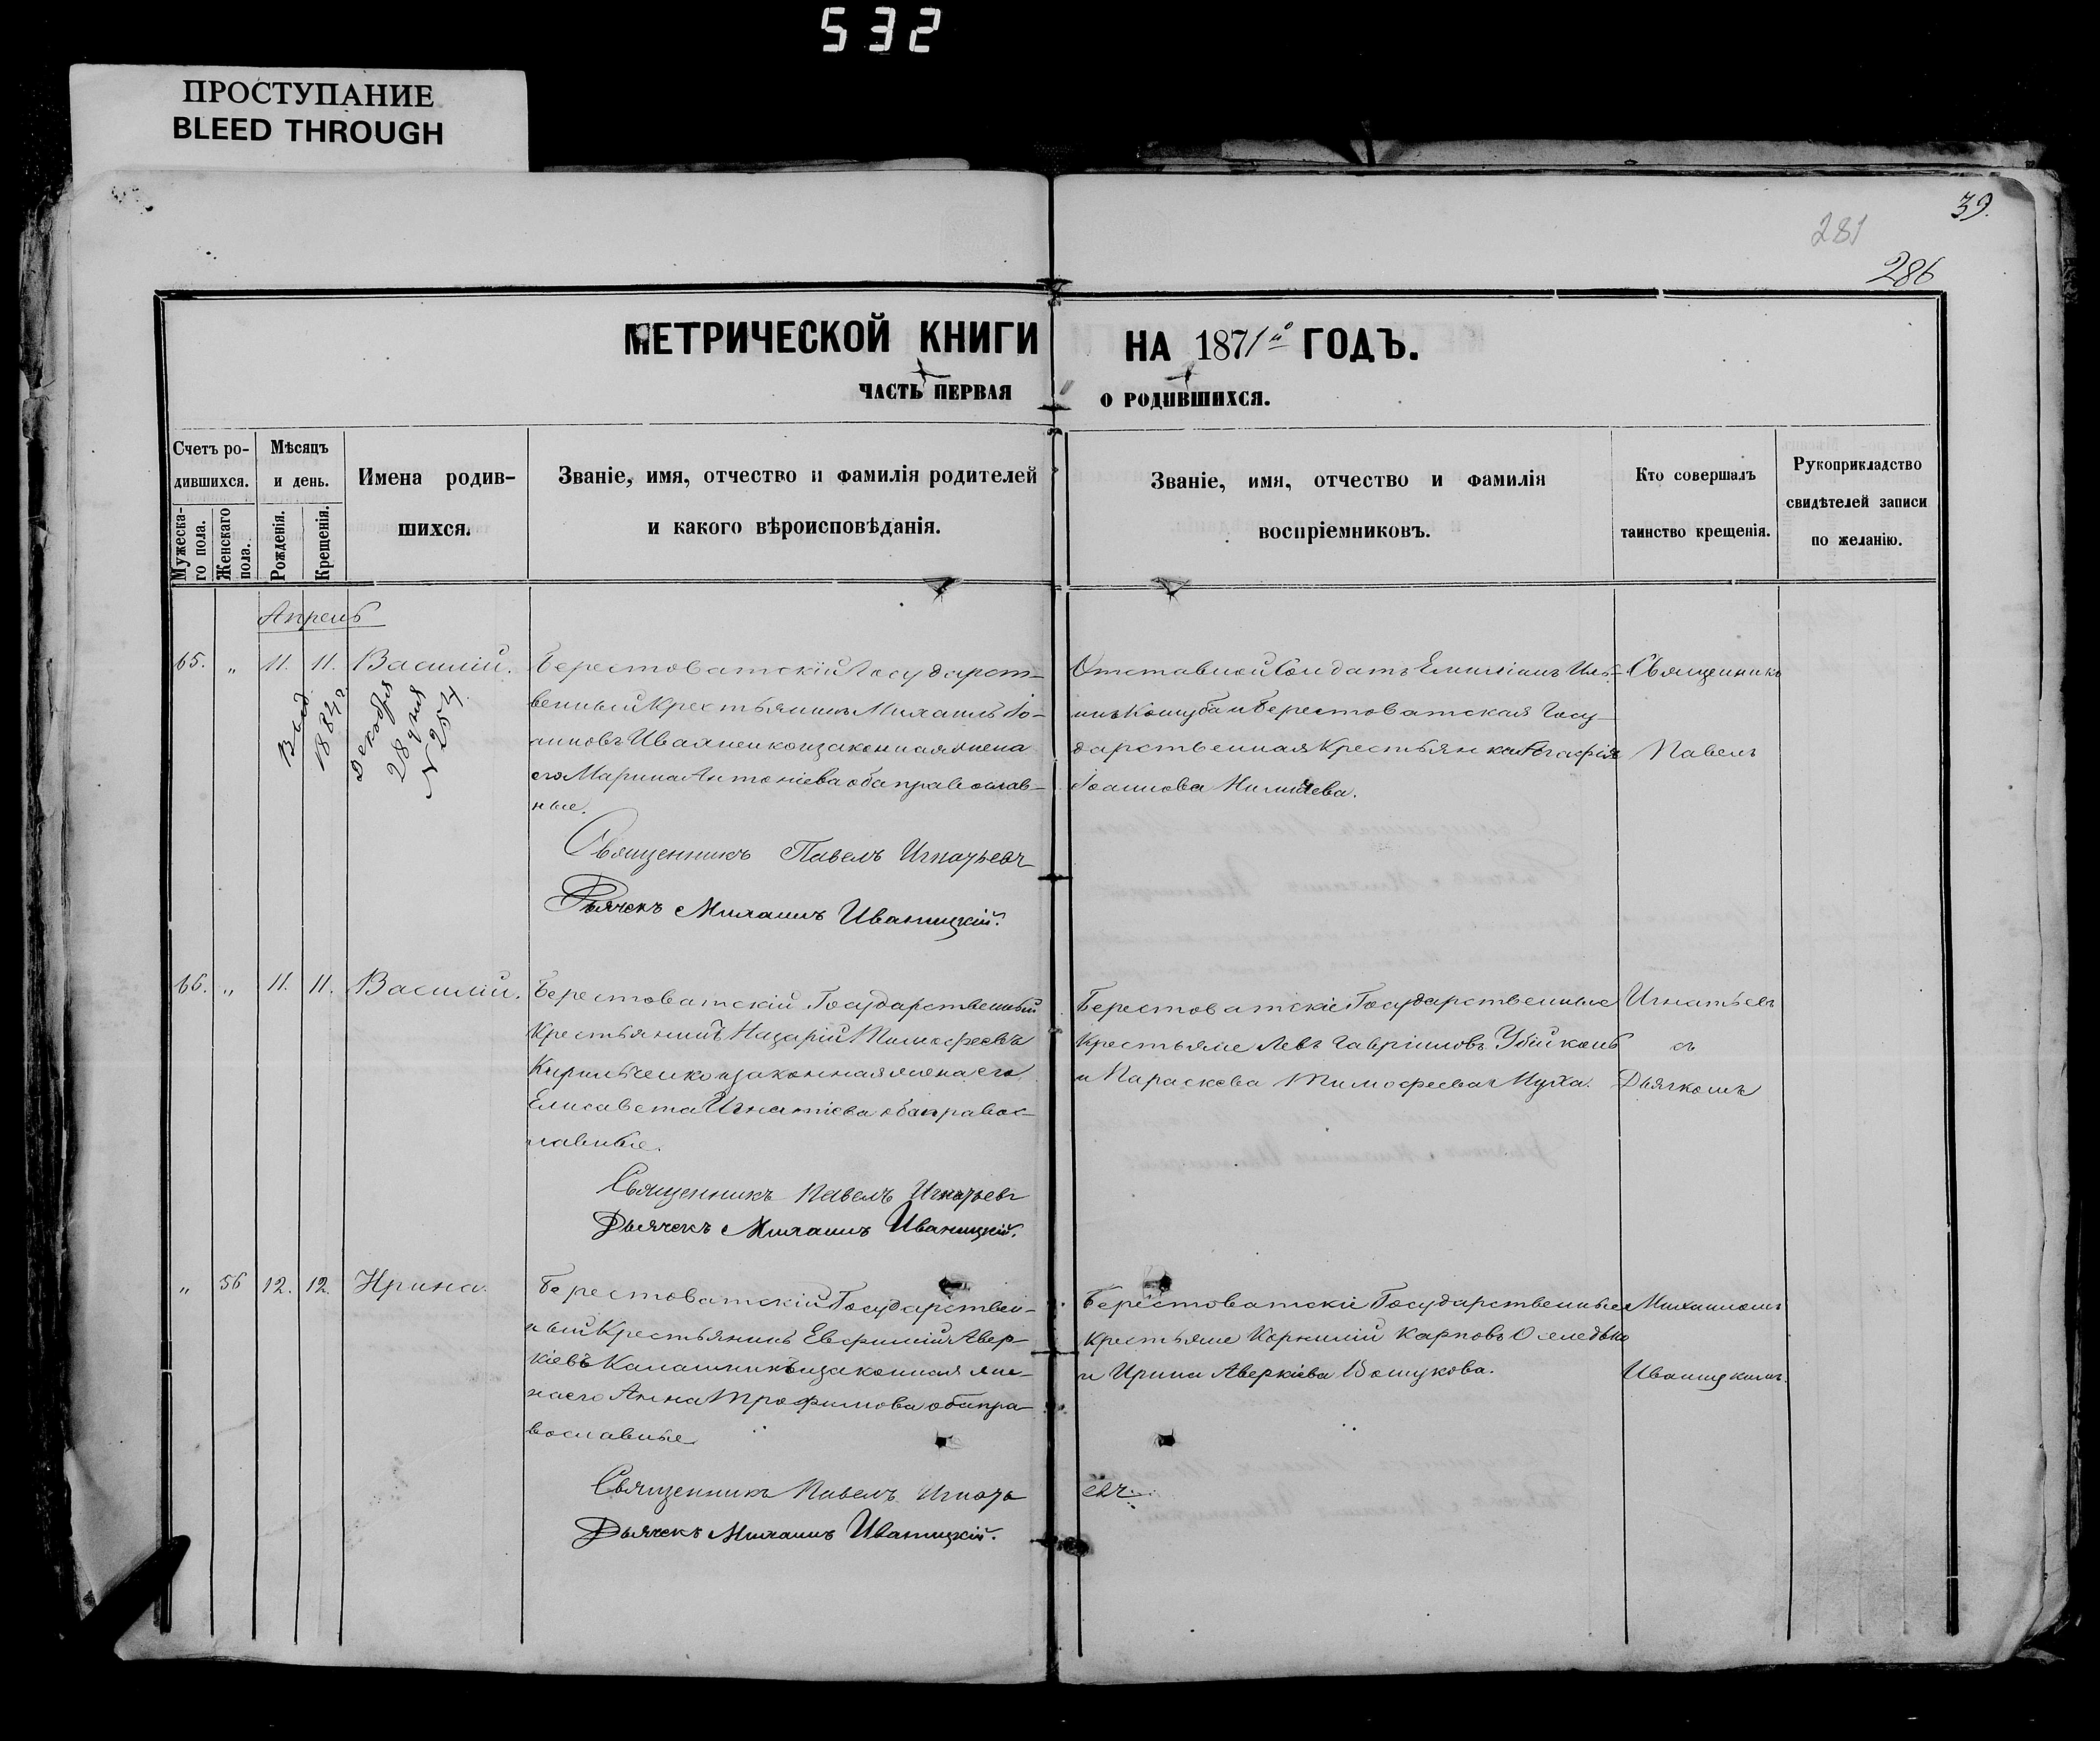 532
ПРОСТУПАНИЕ
BLEED THROUGH
39.
281
286
МЕТРИЧЕСКОЙ КНИГИ НА 1871й ГОДЪ.
ЧАСТЬ ПЕРВАЯ О РОДИВШИХСЯ.
Счетъ ро-
дившихся.
Мужеска-
го пола.
Женскаго
пола.
Мѣсяцъ
и день.
Рожденія.
Крещенія.
Имена родив-
шихся.
Званіе, имя, отчество и фамилія родителей
и какого вѣроисповѣданія.
Званіе, имя, отчество и фамилія
воспріемниковъ.
Кто совершалъ
таинство крещенія.
Рукоприкладство
свидѣтелей записи
по желанію.
Апрель
65. „ 11. 11. Василій.
Выд.
1884г.
Декабря
28 дня
N 254
Берестоватскій Государст-
венный Крестьянинъ Михаилъ Іо-
анновъ и законная жена
его Марина Антоніева оба православ-
ные.
Священникъ Павелъ Игнатьевъ
Дьячекъ Михаилъ Иваницкій.
Отставной Солдатъ Емиліанъ Иль-
инъ и Берестоватская Госу-
дарственная Крестьянка Агафія
Іоаннова
Священникъ
Павелъ
66. „ 11. 11. Василій.
Берестоватскій Государственный
Крестьянинъ Назарій Тимофеевъ
Кирильченко и законная жена его
Елисавета Игнатіева оба правос-
лавные.
Священникъ Павелъ Игнатьевъ
Дьячекъ Михаилъ Иваницкій.
Берестоватскіе Государственные
Крестьяне Левъ Гавріиловъ
и Параскева Тимофеева Муха.
Игнатьевъ
съ
Дьячкомъ
„ 56 12. 12. Ирина.
Берестоватскій Государствен-
ный Крестьянинъ Евфимій Авер-
кіевъ Калашникъ и законная же-
на его Анна Трофимова оба пра-
вославные
Священникъ Павелъ Игнатьевъ
Дьячекъ Михаилъ Иваницкій.
Берестоватскіе Государственные
Крестьяне Корнилій Карповъ Оселедько
и Ирина Аверкіева
Михаиломъ
Иваницкимъ.